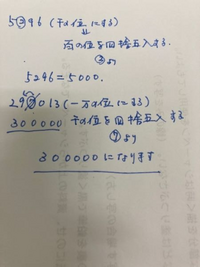 5②96 (千の位にする)
⇓
百の位を四捨五入する.
②より
5296=5000.
29⑦013(一万の位にする)
300000 千の位を四捨五入する
⑦より
300000になります